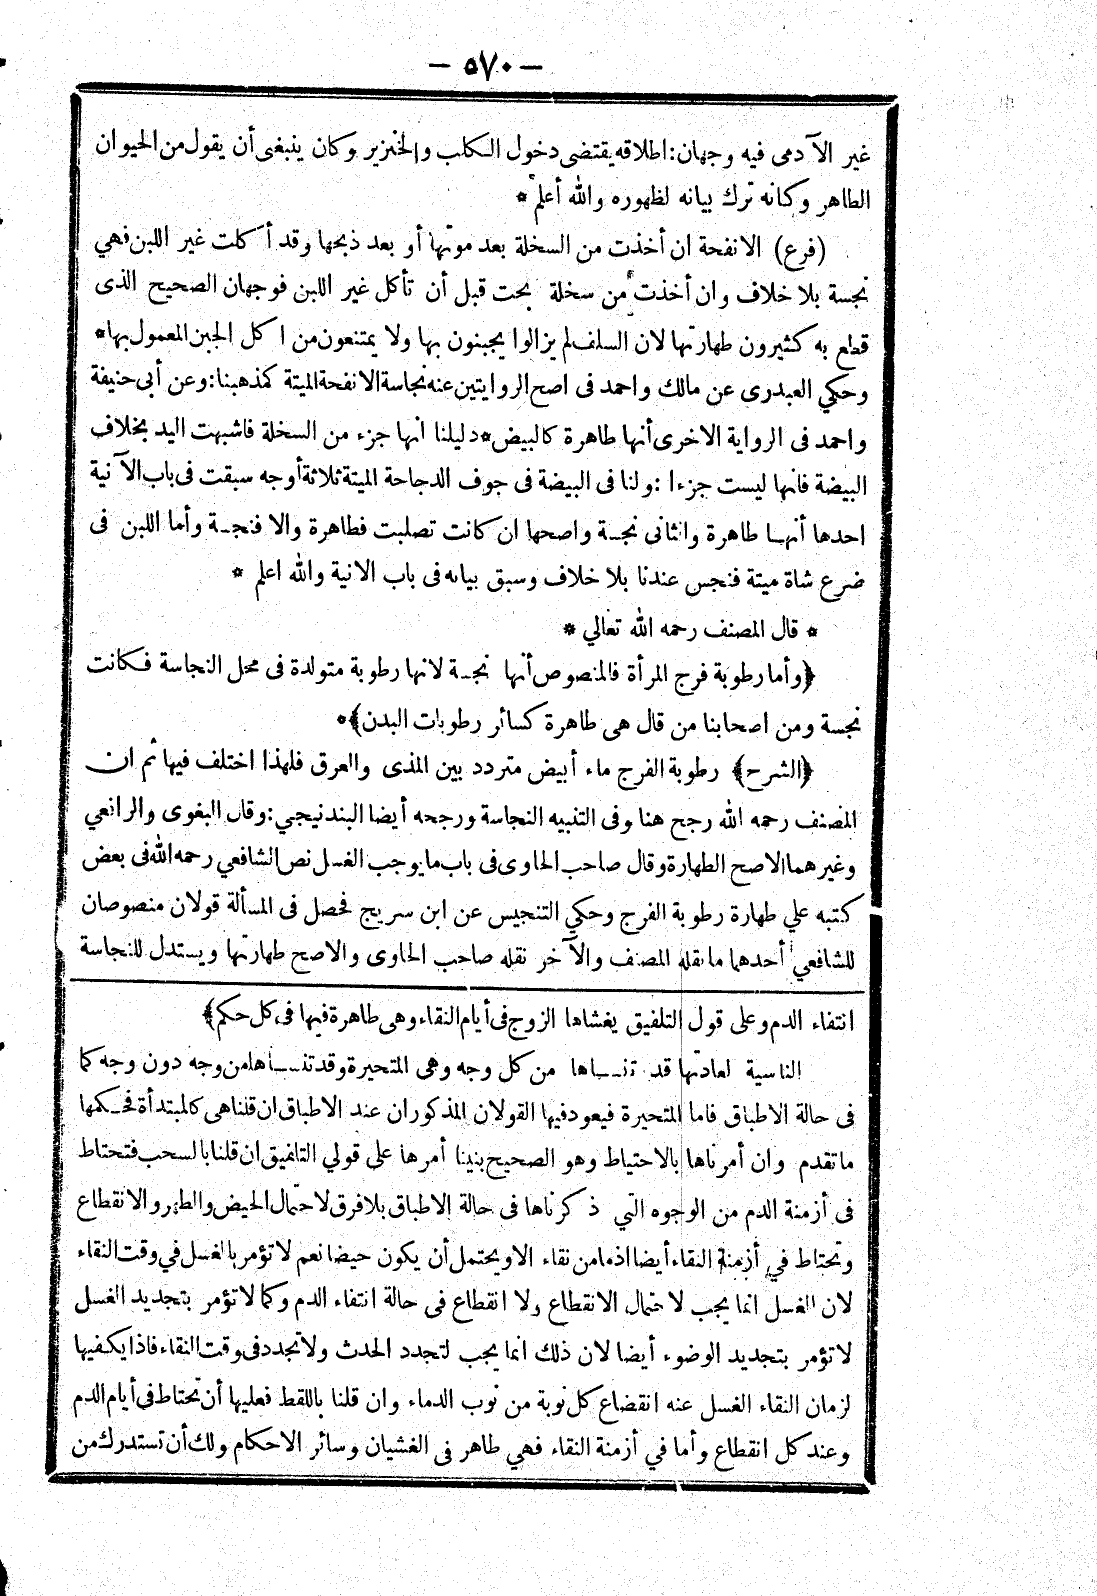 — ٥٧٠ —
غير الآدمى فيه وجهان: اطلاقه يقتضى دخول الكلب والخنزير وكان ينبغى أن يقول من الحيوان
الطاهر وكانه ترك بيانه لظهوره والله أعلم *
(فرع) الانفحة ان أخذت من السخلة بعد موتها أو بعد ذبحها وقد أكلت غير اللبن فهي
نجسة بلا خلاف وان أخذت من سخلة بحت قبل أن تأكل غير اللبن فوجهان الصحيح الذى
قطع به كثيرون طهارتها لان السلف لم يزالوا يجبنون بها ولا يمتنعون من اكل الجبن المعمول بها*
وحكي العبدرى عن مالك واحمد فى اصح الروايتين عنه نجاسة الانفحة الميتة كمذهبنا: وعن أبى حنيفة
واحمد فى الرواية الاخرى أنها طاهرة كالبيض* دليلنا انها جزء من السخلة فاشبهت اليد بخلاف
البيضة فانها ليست جزءا: ولنا فى البيضة فى جوف الدجاجة الميتة ثلاثة أوجه سبقت فى باب الآنية
احدها أنها طاهرة والثانى نجسة واصحها ان كانت تصلبت فطاهرة والا فنجسة وأما اللبن فى
ضرع شاة ميتة فنجس عندنا بلا خلاف وسبق بيانه فى باب الانية والله اعلم *
* قال المصنف رحمه الله تعالي *
﴿وأما رطوبة فرج المرأة فالمنصوص أنها نجسة لانها رطوبة متولدة فى محل النجاسة فكانت
نجسة ومن اصحابنا من قال هى طاهرة كسائر رطوبات البدن﴾*
﴿الشرح﴾ رطوبة الفرج ماء أبيض متردد بين المذى والعرق فلهذا اختلف فيها ثم ان
المصنف رحمه الله رجح هنا وفى التنبيه النجاسة ورجحه أيضا البندنيجي: وقال البغوى والرافعي
وغيرهما الاصح الطهارة وقال صاحب الحاوى فى باب ما يوجب الغسل نص الشافعي رحمه الله فى بعض
كتبه علي طهارة رطوبة الفرج وحكي التنجيس عن ابن سريج فحصل فى المسألة قولان منصوصان
للشافعي أحدهما ما نقله المصنف والآخر نقله صاحب الحاوى والاصح طهارتها ويستدل للنجاسة
انتفاء الدم وعلى قول التلفيق يغشاها الزوج فى أيام النقاء وهى طاهرة فيها فى كل حكم﴾
الناسية لعادتها قد تنساها من كل وجه وهى المتحيرة وقد تنساها من وجه دون وجه كما
فى حالة الاطباق فاما المتحيرة فيعود فيها القولان المذكوران عند الاطباق ان قلنا هى كالمبتدأة فحكمها
ما تقدم وان أمرناها بالاحتياط وهو الصحيح بنينا أمرها على قولي التلفيق ان قلنا بالسحب فتحتاط
فى أزمنة الدم من الوجوه التي ذكرناها فى حالة الاطباق بلا فرق لاحتمال الحيض والطهر والانقطاع
وتحتاط في أزمنة النقاء أيضا اذ ما من نقاء الا ويحتمل أن يكون حيضا نعم لا تؤمر بالغسل في وقت النقاء
لان الغسل انما يجب لاحتمال الانقطاع ولا انقطاع فى حالة انتفاء الدم وكما لا تؤمر بتجديد الغسل
لا تؤمر بتجديد الوضوء أيضا لان ذلك انما يجب لتجدد الحدث ولا تجدد فى وقت النقاء فاذا يكفيها
لزمان النقاء الغسل عنه انقضاع كل نوبة من نوب الدماء وان قلنا باللقط فعليها أن تحتاط فى أيام الدم
وعند كل انقطاع وأما في أزمنة النقاء فهي طاهر فى الغشيان وسائر الاحكام ولك أن تستدرك من